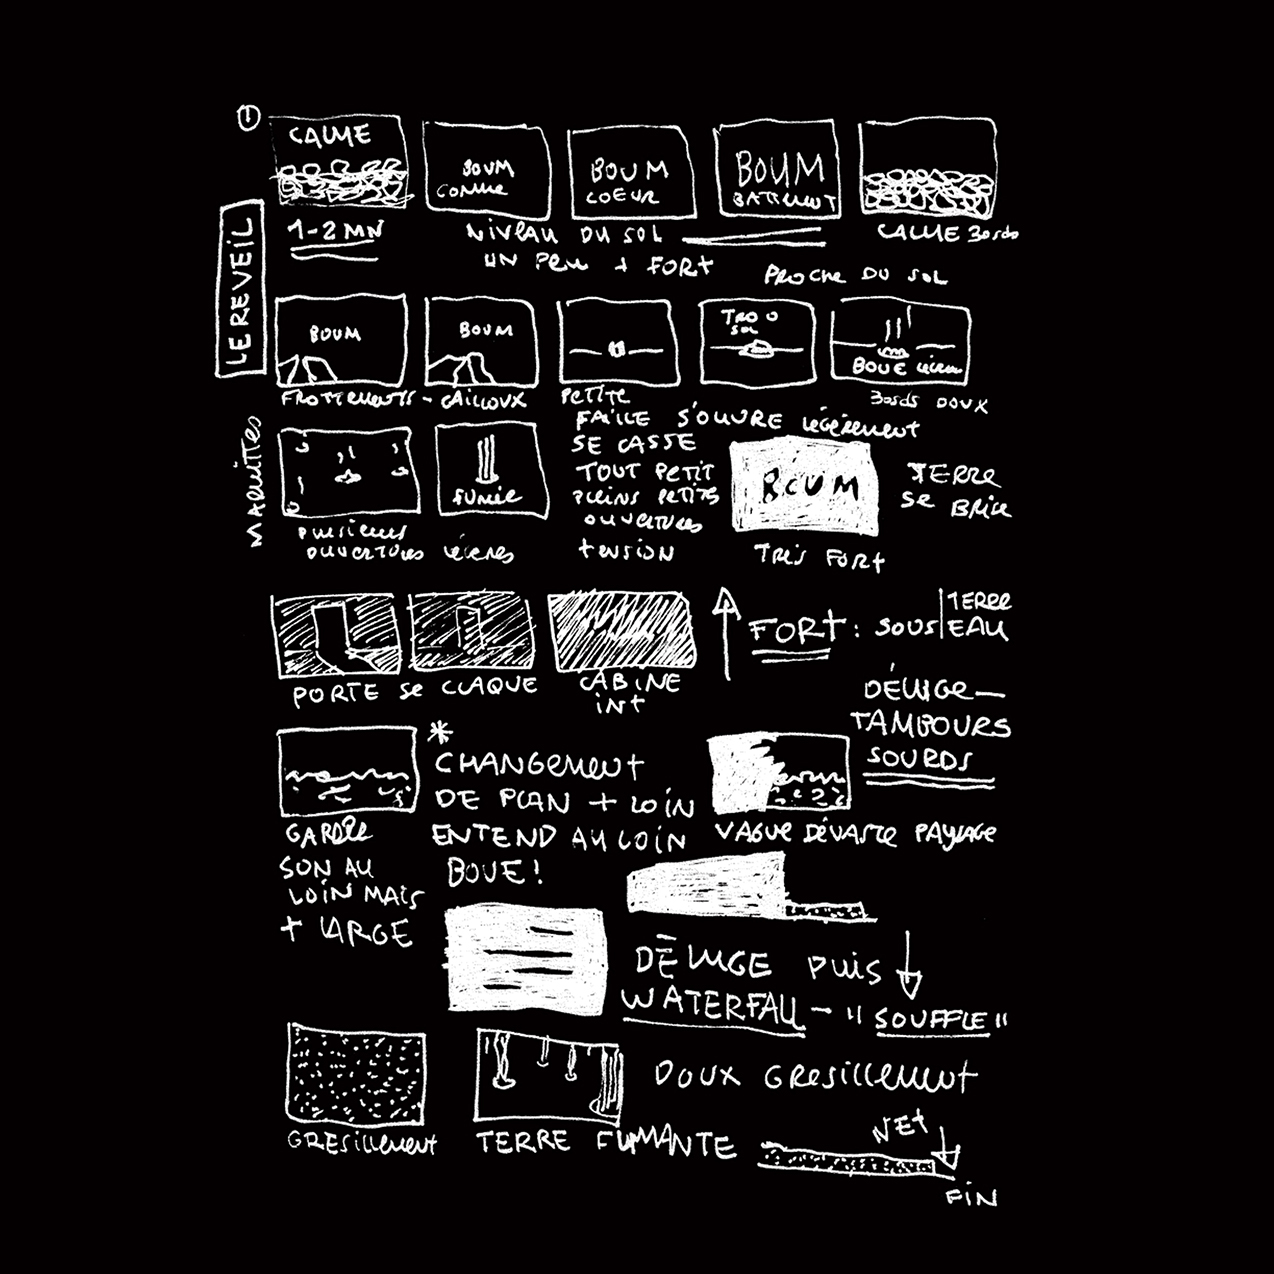 1
LE REVEIL
CALME
1-2 MN
BOUM
COMME
BOUM
COEUR
BOUM
BATIMENT
NIVEAU DU SOL
UN PEU + FORT
CALME
PROCHE DU SOL
BOUM
BOUM
FROTTEMENTS - CAILLOUX
TROO
SOL
BOUE
DOUX
PETITE
FAILLE S'OUVRE LÉGÈREMENT
SE CASSE
TOUT PETIT
PLEINS PETITS
OUVERTURES
TENSION
MARMITTES
PLUSIEURS
OUVERTURES LÉGÈRES
FUMÉE
BOUM
TRÈS FORT
TERRE
SE BRISE
PORTE SE CLAQUE
CABINE
INT
FORT : SOUS TERRE
EAU
DÉLUGE —
TAMBOURS
SOURDS
GARDER
SON AU
LOIN MAIS
+ LARGE
*
CHANGEMENT
DE PLAN + LOIN
ENTEND AU LOIN
BOUE !
VAGUE DÉVASTE PAYSAGE
DÉLUGE PUIS
WATERFALL - "SOUFFLE"
DOUX GRESILLEMENT
GRESILLEMENT
TERRE FUMANTE
NET
FIN